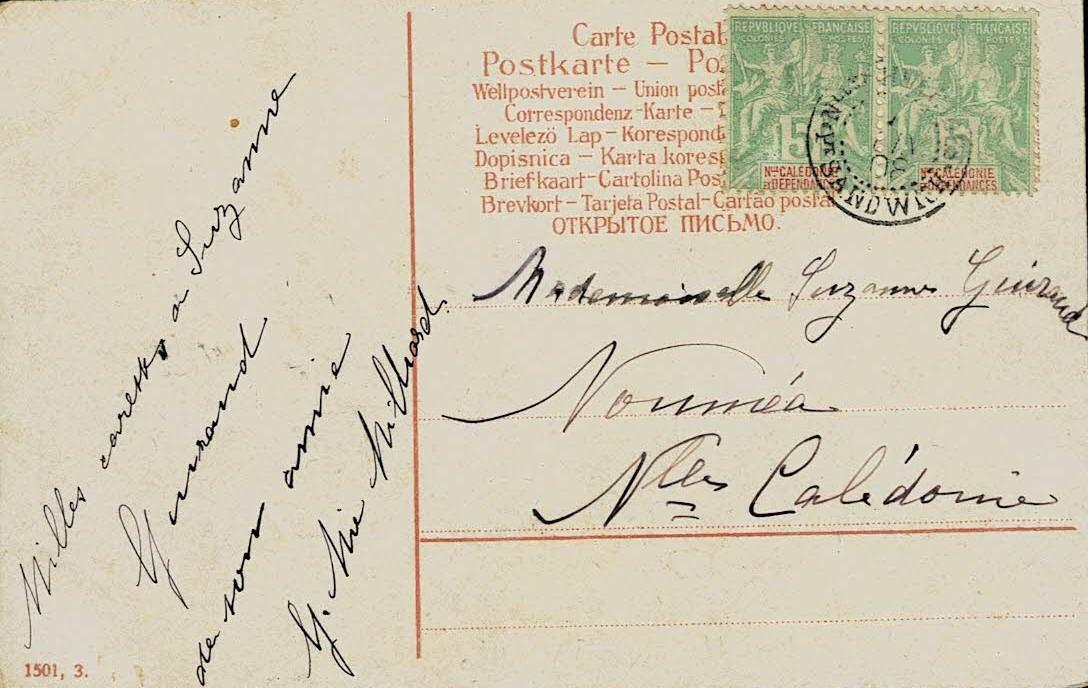 Carte Postal
Postkarte — Po
Weltpostverein — Union post
Correspondenz-Karte —
Levelező Lap — Korespond
Dopisnica — Karta koresp
Briefkaart — Cartolina Pos
Brevkort — Tarjeta Postal — Cartão posta
ОТКРЫТОЕ ПИСЬМО.
REPVBLIQVE FRANÇAISE
COLONIES POSTES
5
Nlle CALEDONIE
ET DEPENDANCES
REPVBLIQVE FRANÇAISE
COLONIES POSTES
5
Nlle CALEDONIE
ET DEPENDANCES
PORT SANDWICH
Mademoiselle Suzanne Guiraud
Nouméa
Nlles Calédonie
Milles caresses a Suzanne
Guiraud
de son amie
1501, 3.